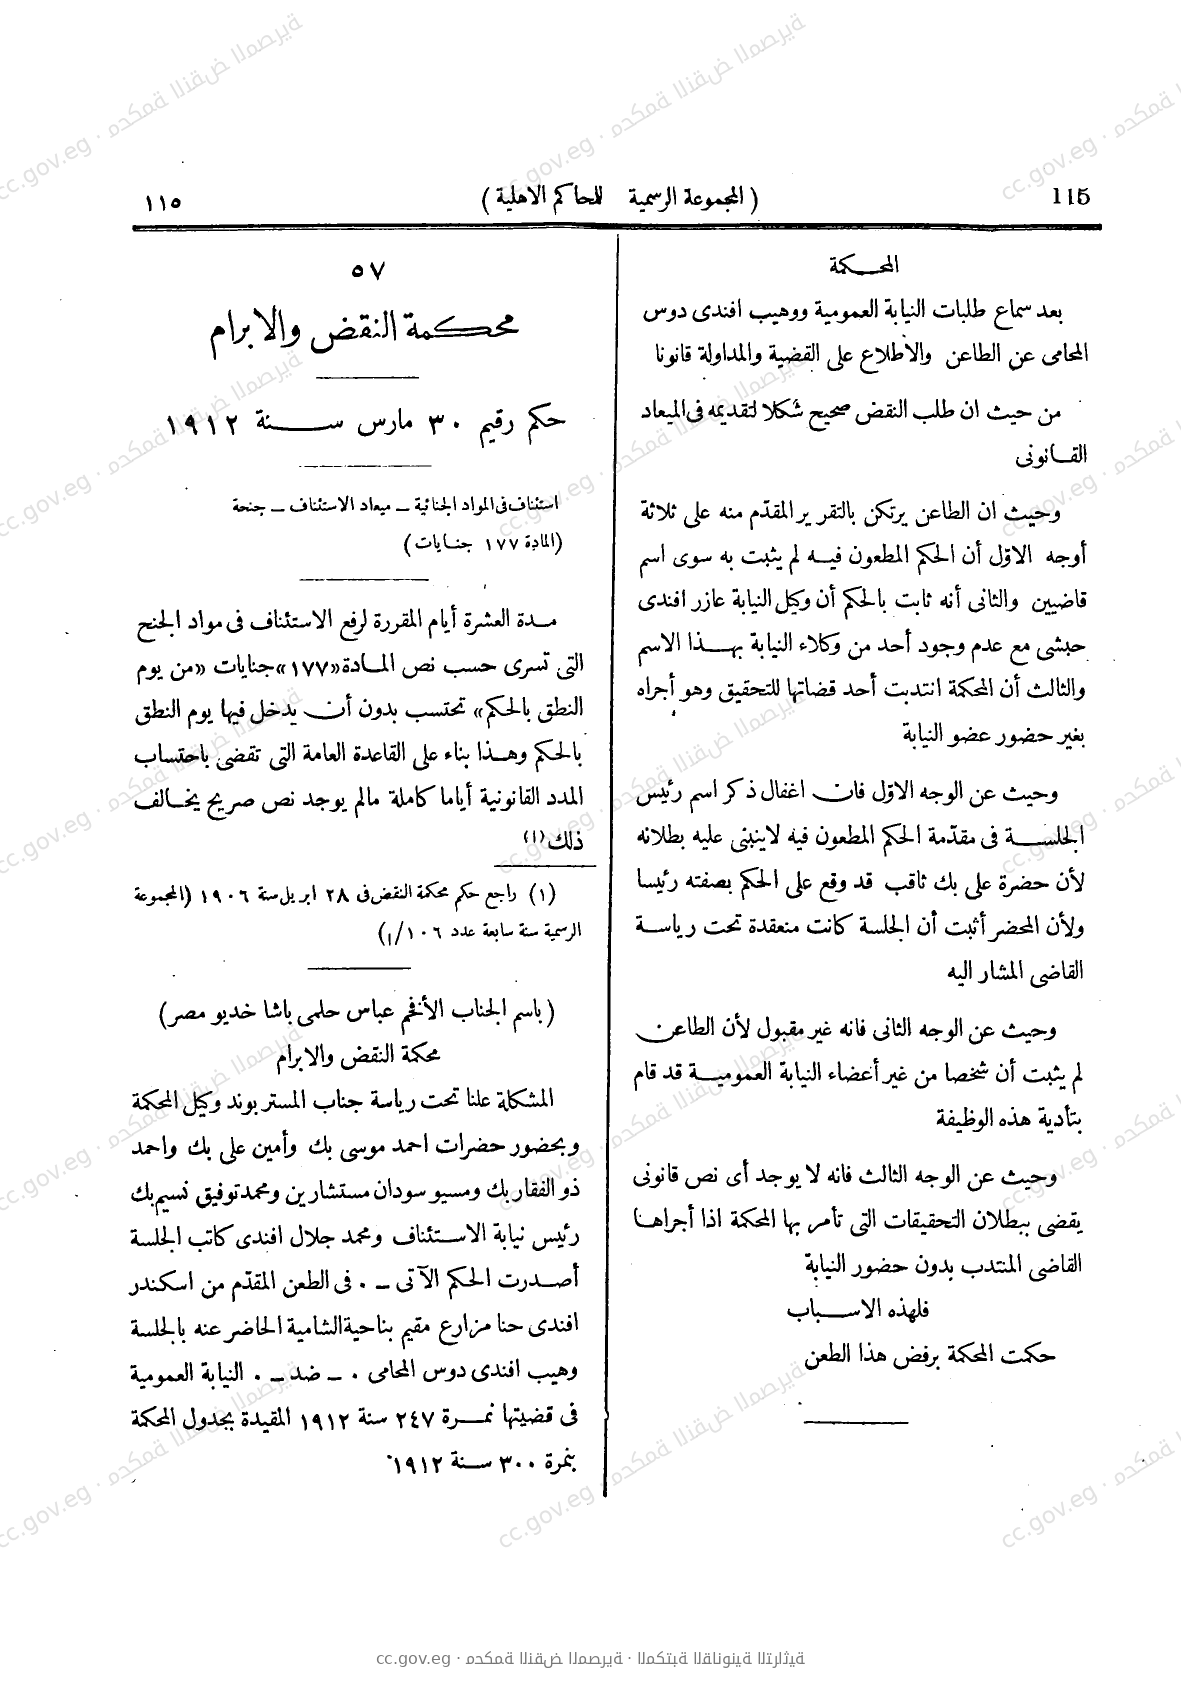 115
( المجموعة الرسمية للمحاكم الاهلية )
١١٥
المحكمة
بعد سماع طلبات النيابة العمومية ووهيب افندى دوس
المحامى عن الطاعن والاطلاع على القضية والمداولة قانونا
من حيث ان طلب النقض صحيح شكلا لتقديمه فى الميعاد
القانونى
وحيث ان الطاعن يرتكن بالتقرير المقدّم منه على ثلاثة
أوجه الاوّل أن الحكم المطعون فيه لم يثبت به سوى اسم
قاضيين والثانى أنه ثابت بالحكم أن وكيل النيابة عازر افندى
حبشى مع عدم وجود أحد من وكلاء النيابة بهذا الاسم
والثالث أن المحكمة انتدبت أحد قضاتها للتحقيق وهو أجراه
بغير حضور عضو النيابة
وحيث عن الوجه الاوّل فان اغفال ذكر اسم رئيس
الجلسة فى مقدّمة الحكم المطعون فيه لاينبنى عليه بطلانه
لأن حضرة على بك ثاقب قد وقع على الحكم بصفته رئيسا
ولأن المحضر أثبت أن الجلسة كانت منعقدة تحت رياسة
القاضى المشار اليه
وحيث عن الوجه الثانى فانه غير مقبول لأن الطاعن
لم يثبت أن شخصا من غير أعضاء النيابة العمومية قد قام
بتأدية هذه الوظيفة
وحيث عن الوجه الثالث فانه لا يوجد أى نص قانونى
يقضى ببطلان التحقيقات التى تأمر بها المحكمة اذا أجراها
القاضى المنتدب بدون حضور النيابة
فلهذه الاسباب
حكمت المحكمة برفض هذا الطعن
٥٧
محكمة النقض والابرام
حكم رقيم ٣٠ مارس سنة ١٩١٢
استئناف فى المواد الجنائية – ميعاد الاستئناف – جنحة
(المادة ١٧٧ جنايات)
مدة العشرة أيام المقررة لرفع الاستئناف فى مواد الجنح
التى تسرى حسب نص المادة «١٧٧» جنايات «من يوم
النطق بالحكم» تحتسب بدون أن يدخل فيها يوم النطق
بالحكم وهذا بناء على القاعدة العامة التى تقضى باحتساب
المدد القانونية أياما كاملة مالم يوجد نص صريح يخالف
ذلك (١)
(١) راجع حكم محكمة النقض فى ٢٨ ابريل سنة ١٩٠٦ (المجموعة
الرسمية سنة سابعة عدد ١٠٦/١)
(باسم الجناب الأفخم عباس حلمى باشا خديو مصر)
محكمة النقض والابرام
المشكلة علنا تحت رياسة جناب المستر بوند وكيل المحكمة
وبحضور حضرات احمد موسى بك وأمين على بك واحمد
ذو الفقار بك ومسيو سودان مستشارين ومحمد توفيق نسيم بك
رئيس نيابة الاستئناف ومحمد جلال افندى كاتب الجلسة
أصدرت الحكم الآتى – ٠ فى الطعن المقدّم من اسكندر
افندى حنا مزارع مقيم بناحية الشامية الحاضر عنه بالجلسة
وهيب افندى دوس المحامى ٠ – ضد – ٠ النيابة العمومية
فى قضيتها نمرة ٢٤٧ سنة ١٩١٢ المقيدة بجدول المحكمة
بنمرة ٣٠٠ سنة ١٩١٢
cc.gov.eg · محكمة النقض المصرية · المكتبة القانونية التراثية